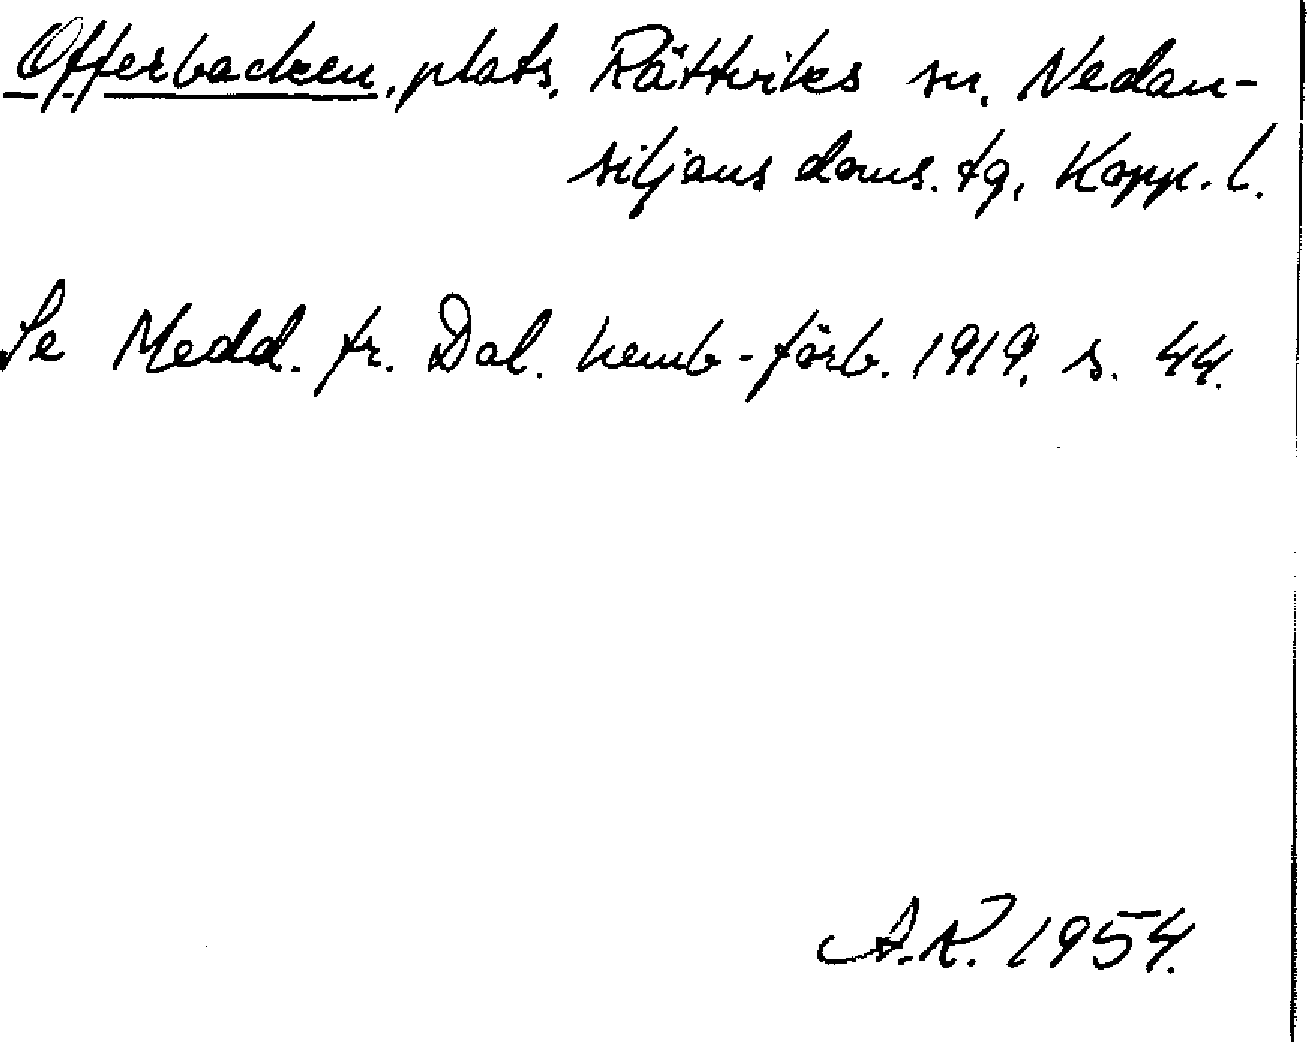 Offerbacken, plats, Rättviks sn, Nedan-
siljans doms. tg, Kopp. l.
Se Medd. fr. Dal. hemb-förb. 1919, s. 44.
A.R. 1954.